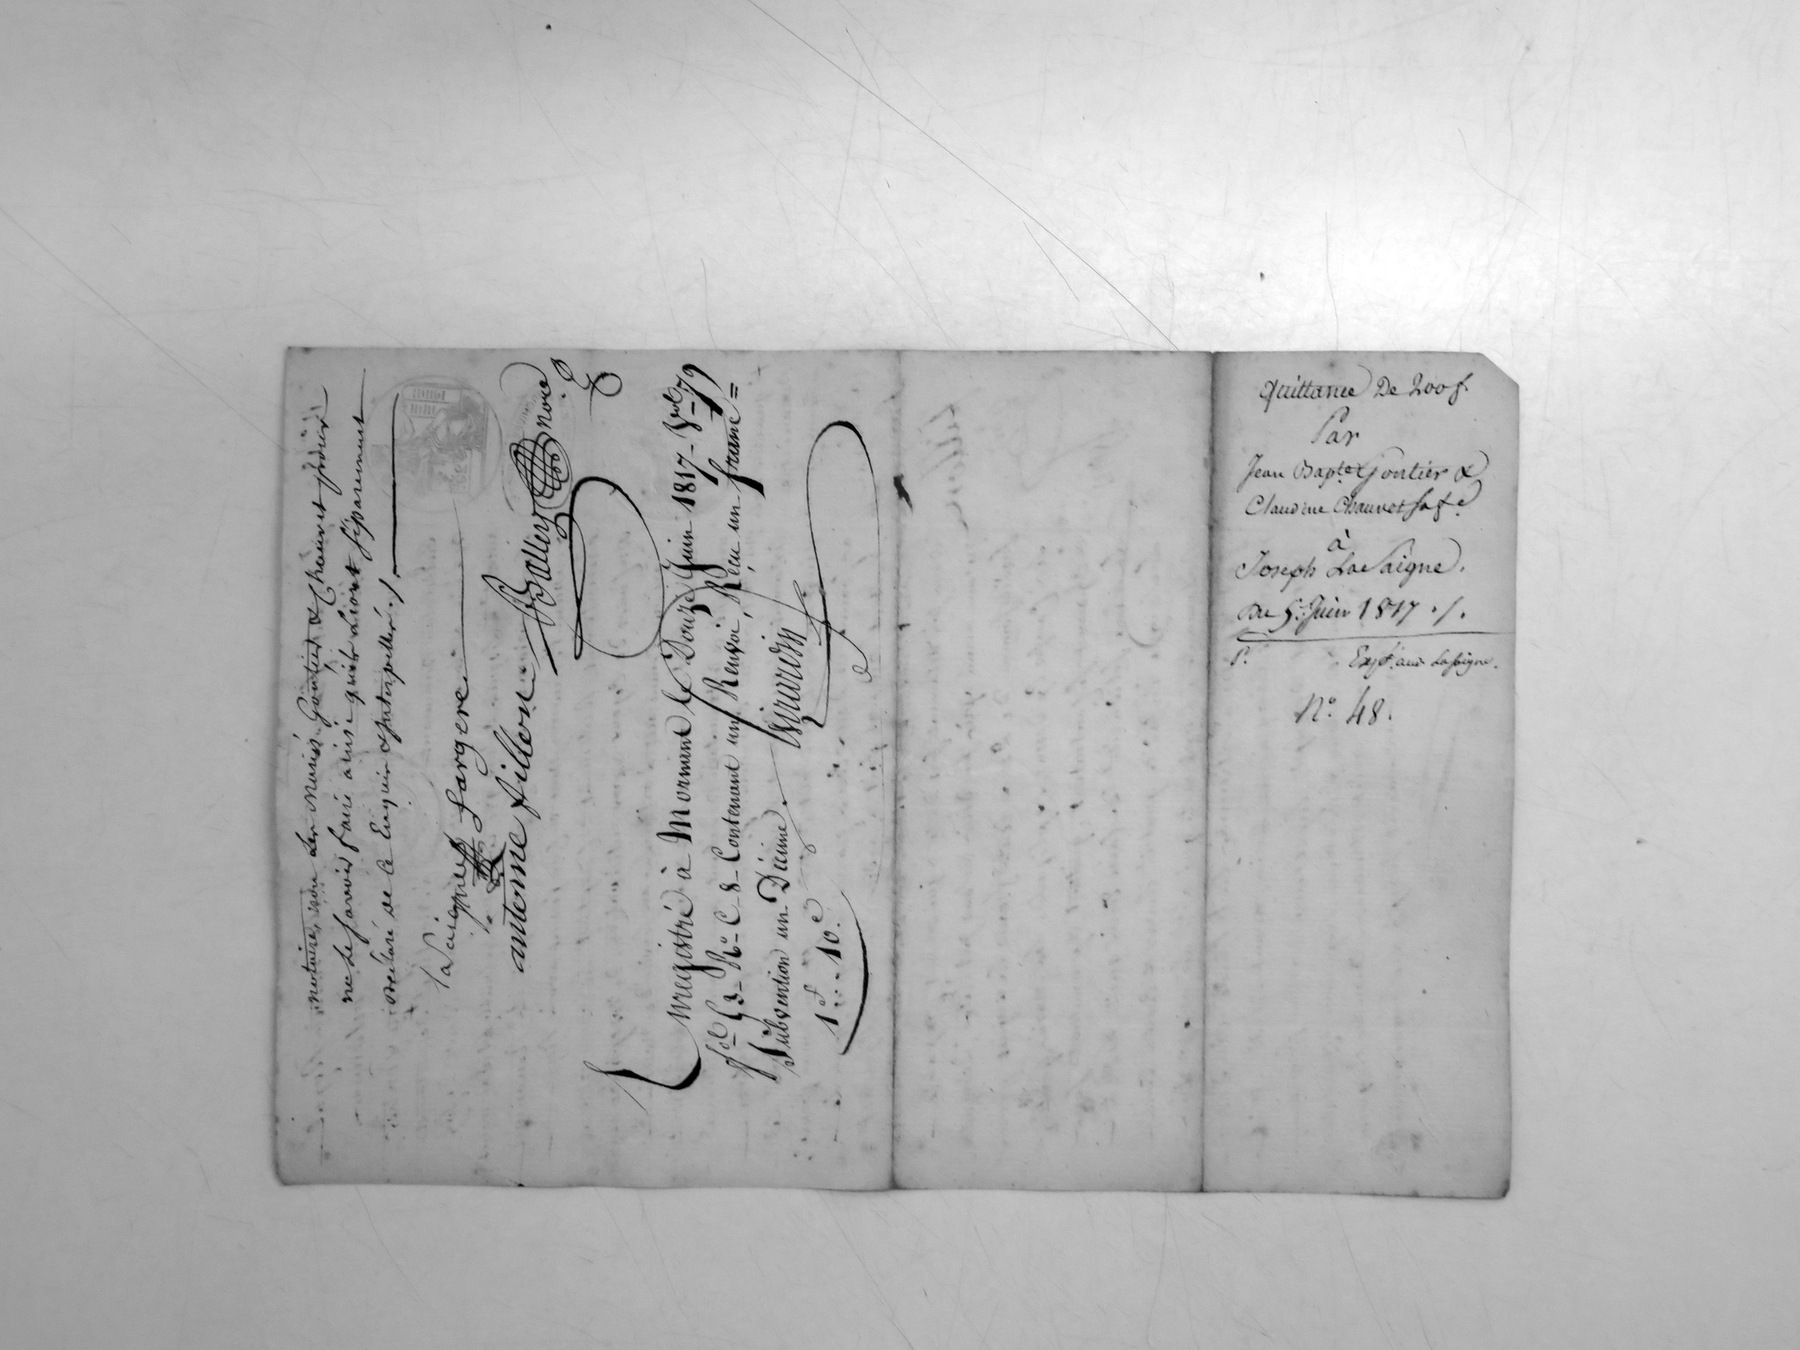 notaire, non les mariés Gontier & Chauvet pour
ne le savoir faire ainsi qu'ils l'ont séparement
déclaré de ce Enquis & Interpellés ./.
laSaigne fargere
antoine fillon Balley no.re
Enregistré à Mornant le Douze Juin 1817 - Vol. 19
f.o 63 R.o C. 8 Contenant un Renvoi, Reçu un franc =
Subvention un Décime.
1.f 10.c
Quittance De 200 f.
Par
Jean Bap.te Gontier &
Claudine Chauvet sa f.e
à
Joseph LaSaigne.
Du 5. Juin 1817 ./.
N.o 48.